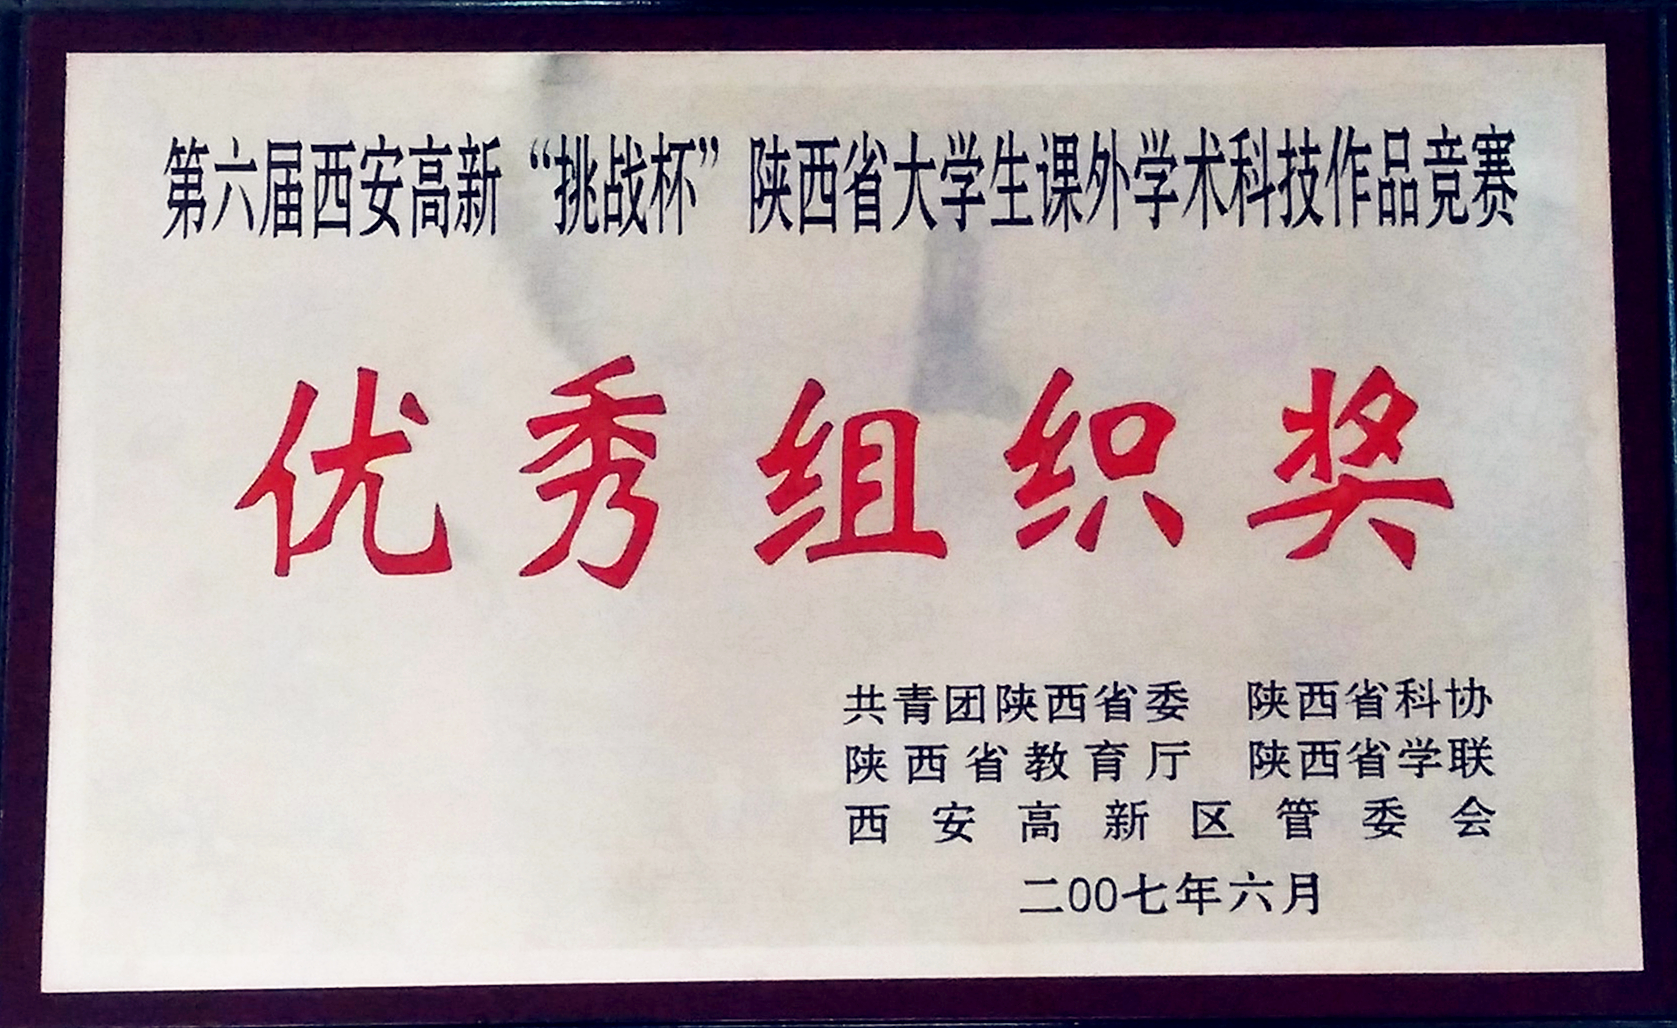 第六届西安高新“挑战杯”陕西省大学生课外学术科技作品竞赛
优秀组织奖
共青团陕西省委 陕西省科协
陕西省教育厅 陕西省学联
西安高新区管委会
二00七年六月